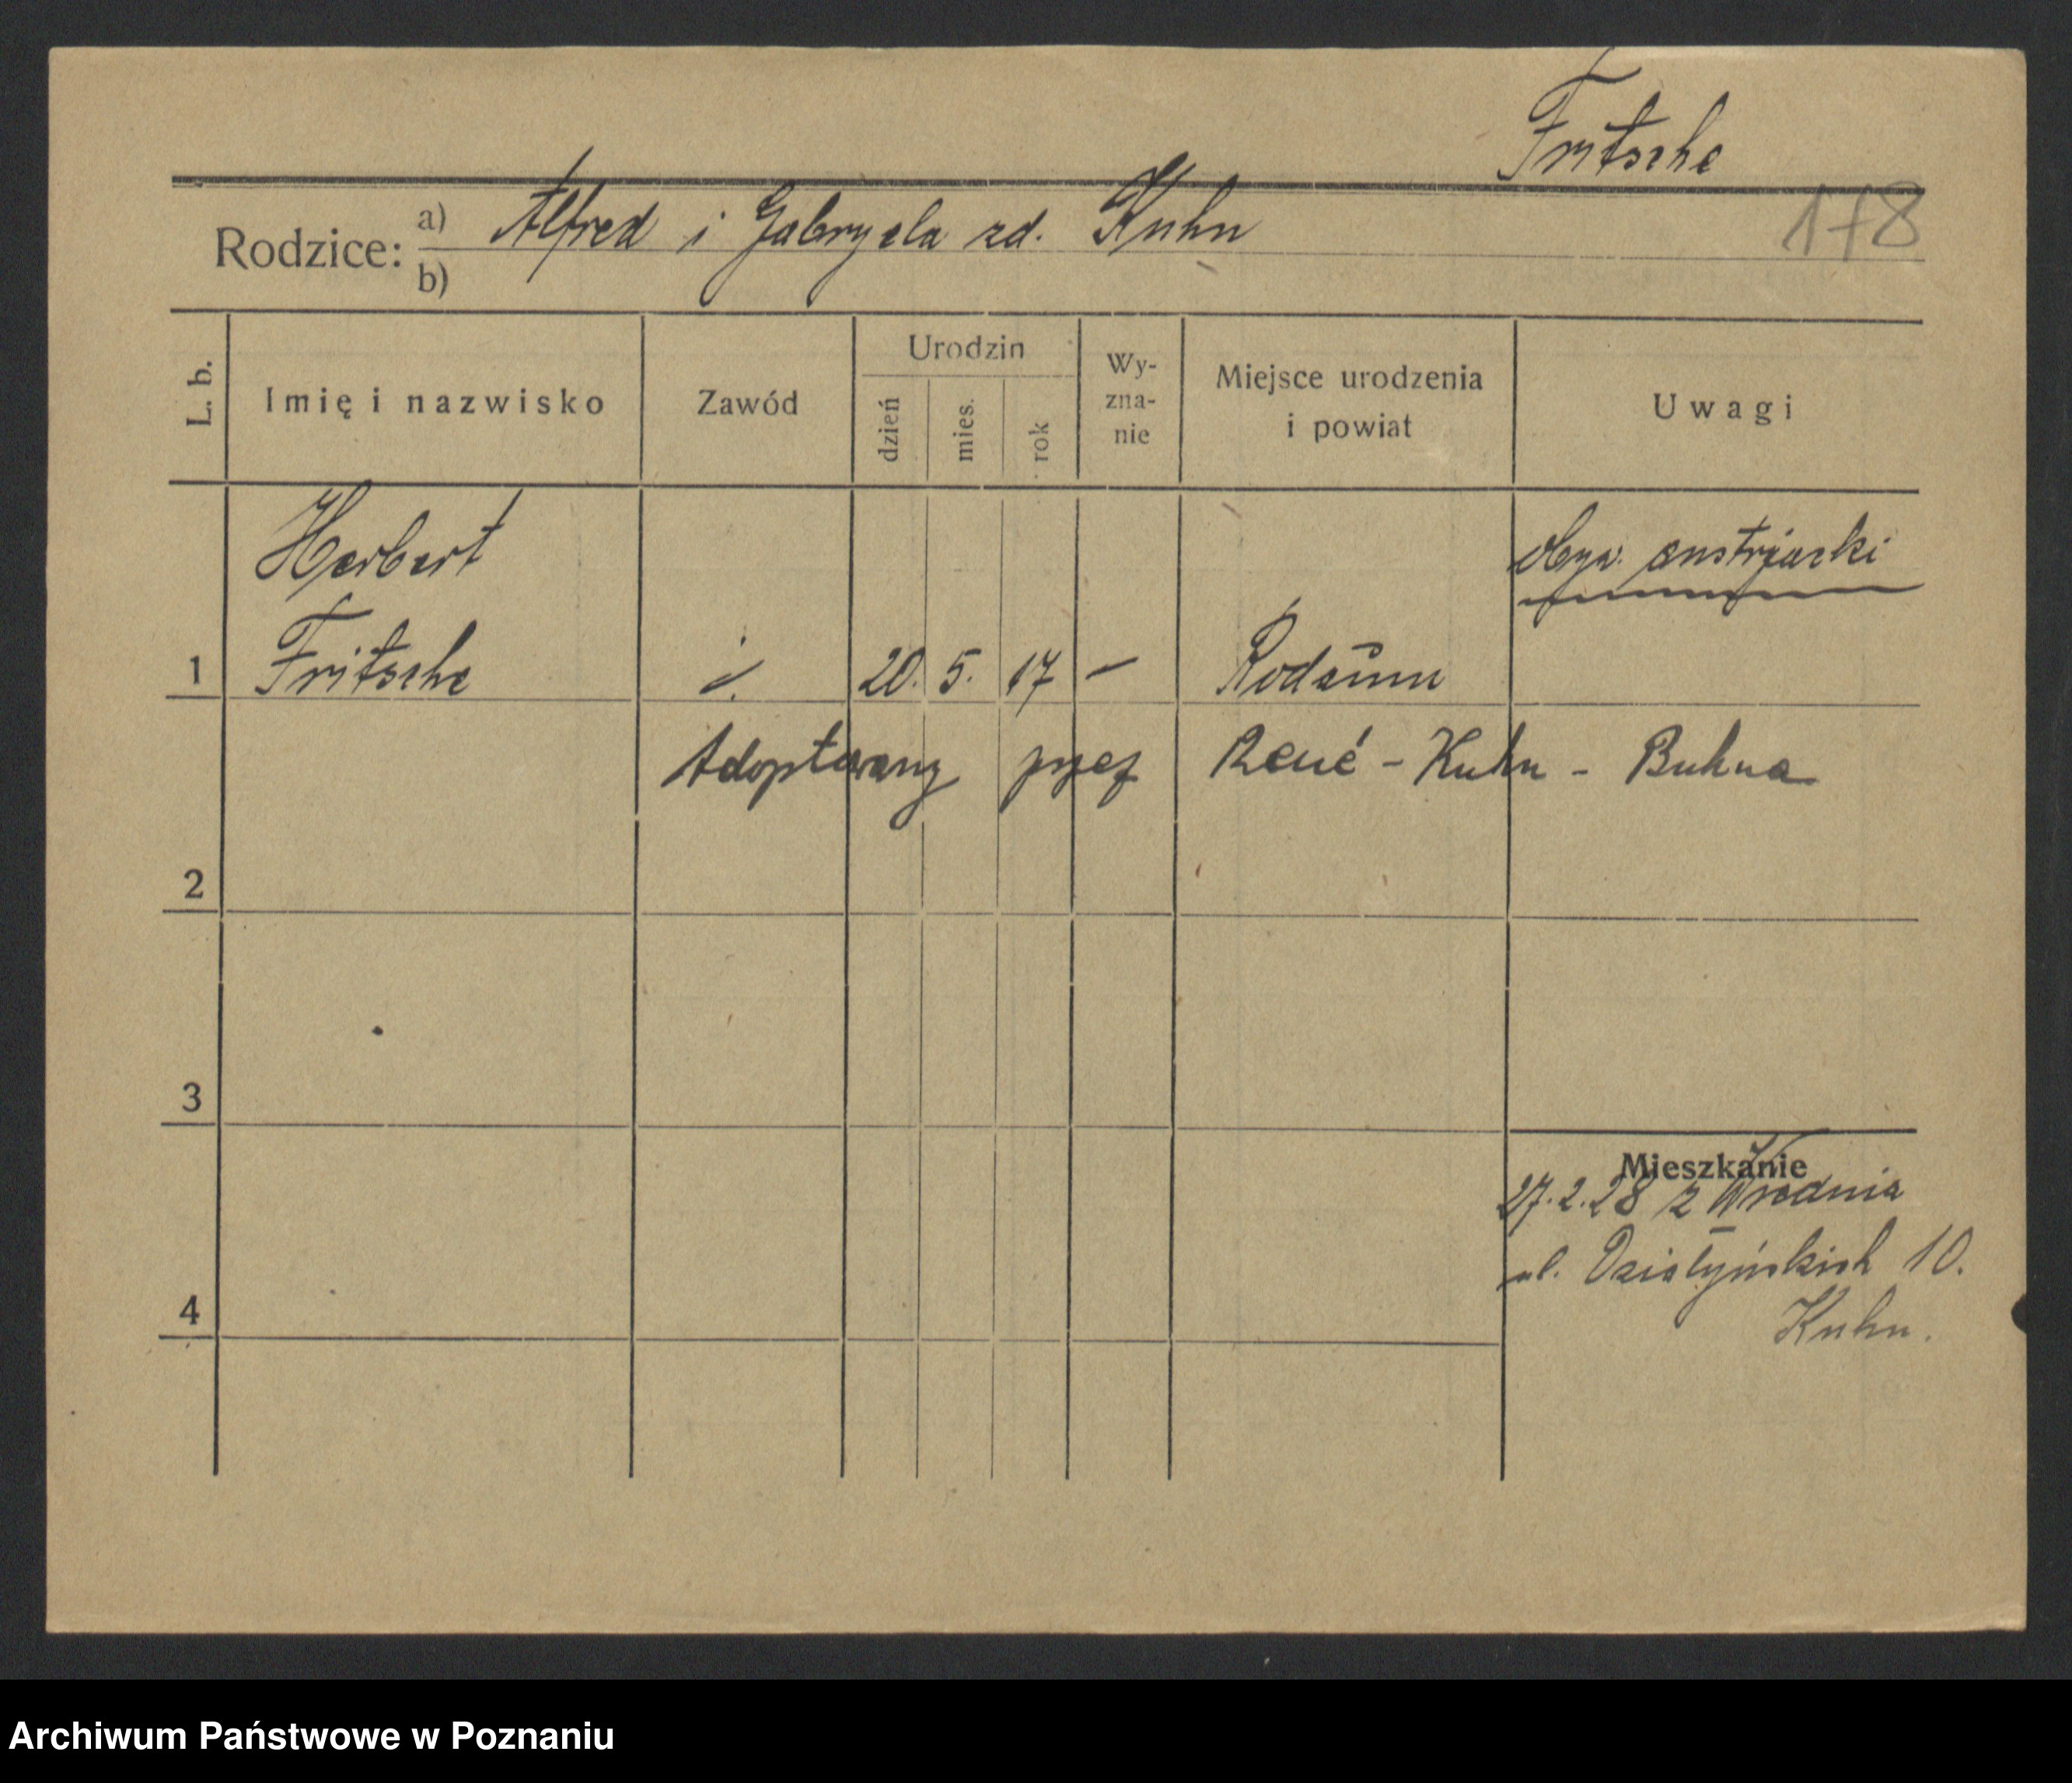 Fritsche
178
Rodzice: a) Alfred i Gabryela zd. Kuhn
b)
L. b. Imię i nazwisko Zawód Urodzin dzień mies. rok Wy-zna-nie Miejsce urodzenia i powiat Uwagi
Herbert obyw. austrjacki
1 Fritsche 20. 5. 17 — Rodaun
Adoptowany przez René - Kuhn - Buhna
2
3
Mieszkanie
27.2.28 z Wiednia
ul. Działyńskich 10.
4 Kuhn.
Archiwum Państwowe w Poznaniu